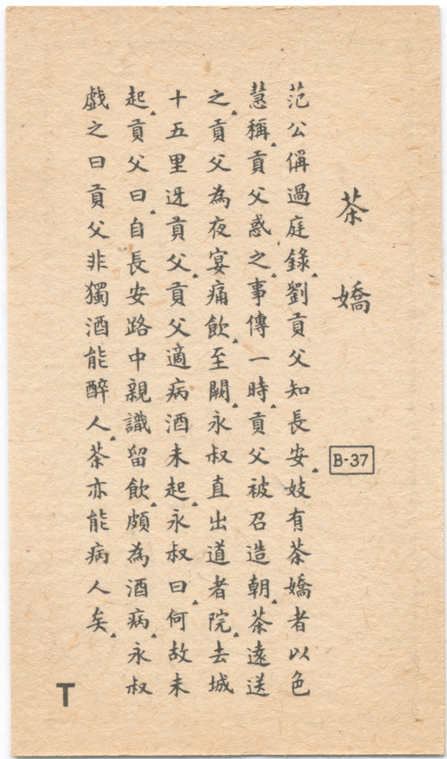 茶嬌
B-37
范公偁過庭錄劉貢父知長安妓有茶嬌者以色
慧稱貢父惑之事傳一時貢父被召造朝茶遠送
之貢父為夜宴痛飲至闕永叔直出道者院去城
十五里迓貢父貢父適病酒未起永叔曰何故未
起貢父曰自長安路中親識留飲頗為酒病永叔
戲之曰貢父非獨酒能醉人茶亦能病人矣
T